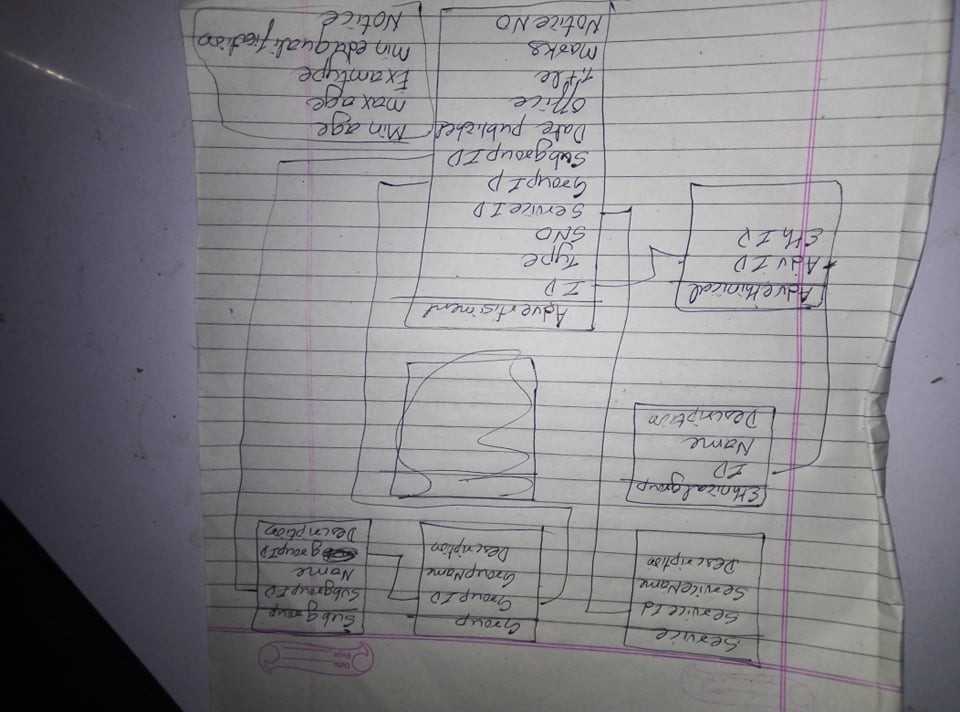 Date
Page
Service
ServiceId
ServiceName
Description
Group
GroupID
GroupName
Description
Subgroup
SubgroupID
Name
groupID
Description
Ethnicalgroup
ID
Name
Description
Advethinical
Adv ID
Eth ID
Advertisiment
ID
Type
SNO
ServiceID
GroupID
SubgroupID
Date published
Office
Title
Marks
NoticeNO
Min age
max age
Examtype
Min eduqualification
Notice